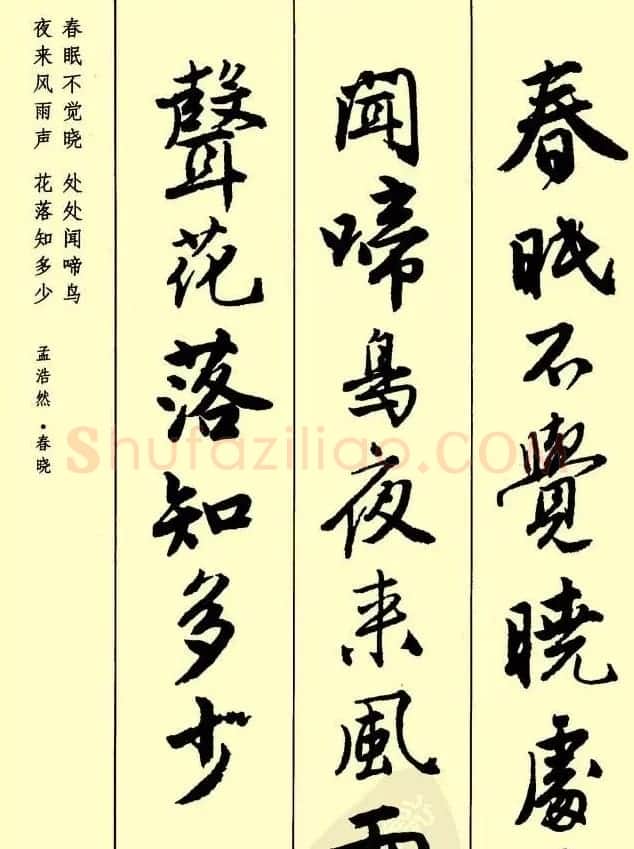 春眠不覺曉處
聞啼鳥夜來風雨
聲花落知多少
春眠不觉晓 处处闻啼鸟
夜来风雨声 花落知多少
孟浩然·春晓
Shufaziliao.COM